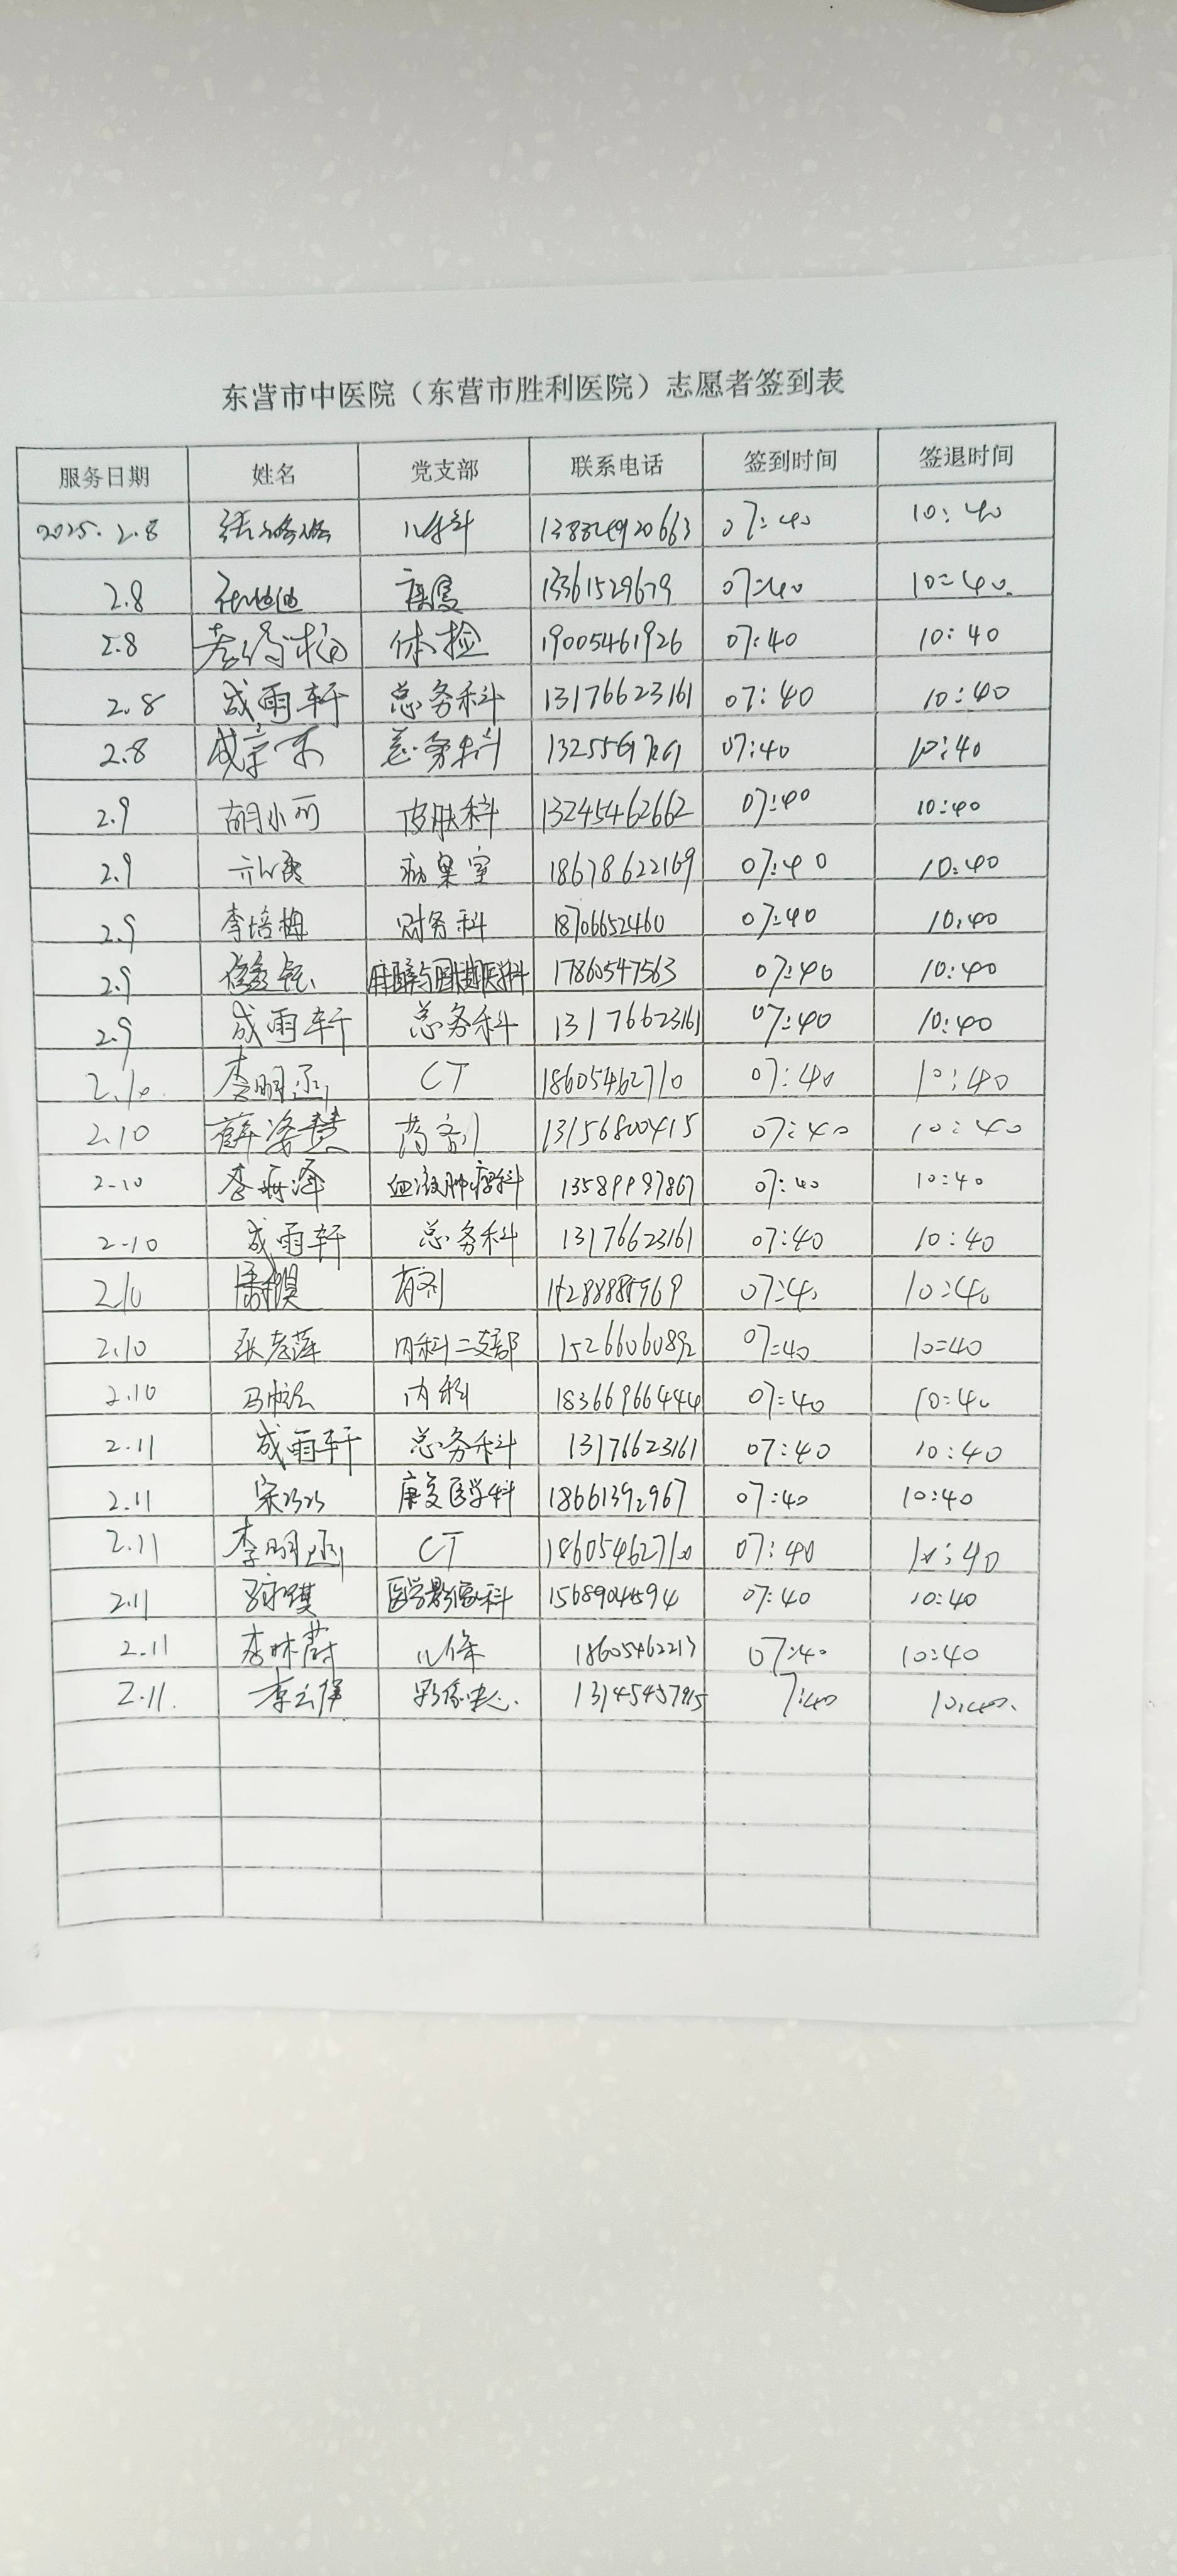 东营市中医院（东营市胜利医院）志愿者签到表
服务日期 姓名 党支部 联系电话 签到时间 签退时间
2025.2.8 儿科 07:40 10:40
2.8 康复 13361529679 07:40 10:40
2.8 体检 19005461926 07:40 10:40
2.8 成雨轩 总务科 13176623161 07:40 10:40
2.8 总务科 07:40 10:40
2.9 胡小丽 皮肤科 13245462662 07:40 10:40
2.9 病案室 18678622169 07:40 10:40
2.9 李培梅 财务科 18706652460 07:40 10:40
2.9 麻醉与围术期医学科 17860547563 07:40 10:40
2.9 成雨轩 总务科 13176623161 07:40 10:40
2.10. 李明函 CT 18605462710 07:40 10:40
2.10 薛海慧 药剂 13156800415 07:40 10:40
2.10 血液肿瘤科 13589987867 07:40 10:40
2.10 成雨轩 总务科 13176623161 07:40 10:40
2.10 药剂 07:40 10:40
2.10 内科二支部 15266060892 07:40 10:40
2.10 内科 18366966444 07:40 10:40
2.11 成雨轩 总务科 13176623161 07:40 10:40
2.11 宋巧巧 康复医学科 18661392967 07:40 10:40
2.11 李明函 CT 18605462710 07:40 10:40
2.11 医学影像科 07:40 10:40
2.11 李林蔚 儿保 18605462213 07:40 10:40
2.11. 影像中心. 7:40 10:40.